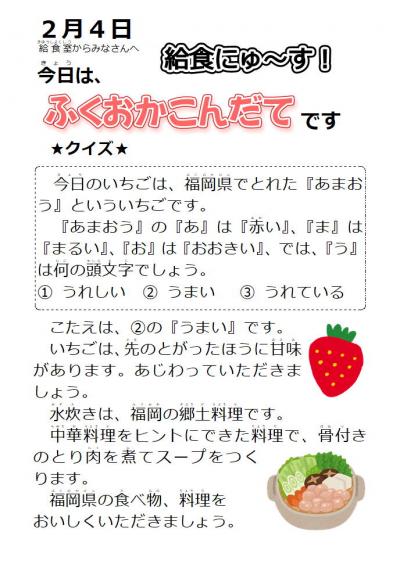 ２月４日
給食室からみなさんへ
給食にゅ～す！
今日は、
ふくおかこんだてです
★クイズ★
今日のいちごは、福岡県でとれた『あまお
う』といういちごです。
『あまおう』の『あ』は『赤い』、『ま』は
『まるい』、『お』は『おおきい』、では、『う』
は何の頭文字でしょう。
① うれしい　② うまい　③ うれている
こたえは、②の『うまい』です。
いちごは、先のとがったほうに甘味
があります。あじわっていただきま
しょう。
水炊きは、福岡の郷土料理です。
中華料理をヒントにできた料理で、骨付き
のとり肉を煮てスープをつく
ります。
福岡県の食べ物、料理を
おいしくいただきましょう。